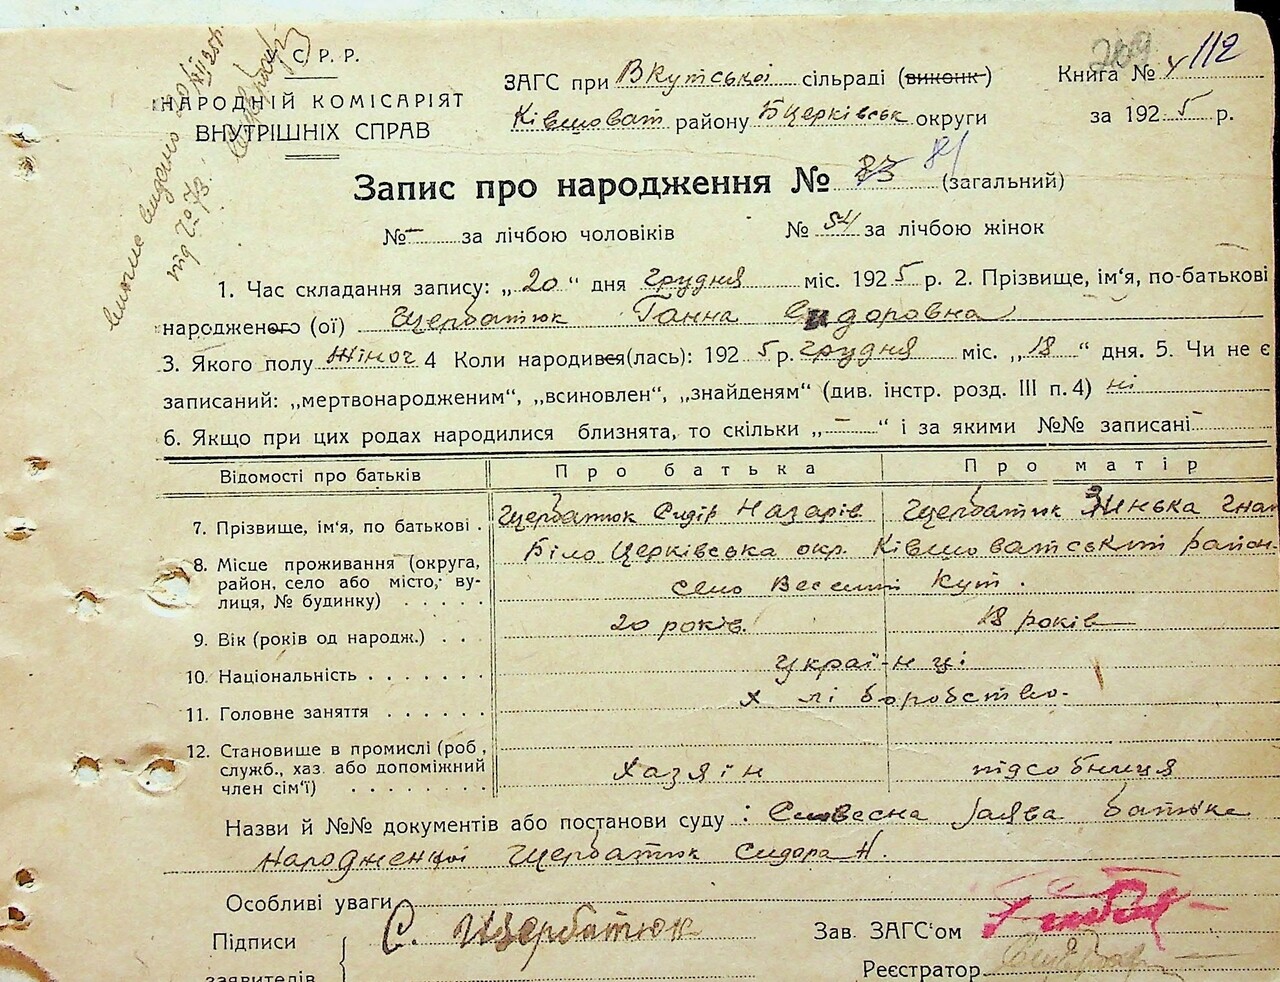 У. С. Р. Р.
НАРОДНІЙ КОМІСАРІЯТ
ВНУТРІШНІХ СПРАВ
ЗАГС при Вкутської сільраді (виконк)
Ківшоват району Бцерківськ округи
269
Книга № 4 112
за 1925 р.
Запис про народження № 83 81 (загальний)
№ — за лічбою чоловіків № 54 за лічбою жінок
1. Час складання запису: „20“ дня грудня міс. 1925 р. 2. Прізвище, ім'я, по-батькові
народженого (ої) Щербатюк Ганна Сидоровна
3. Якого полу жіноч 4 Коли народився(лась): 1925 р. грудня міс. „18“ дня. 5. Чи не є
записаний: „мертвонародженим“, „всиновлен“, „знайденям“ (див. інстр. розд. III п. 4) ні
6. Якщо при цих родах народилися близнята, то скільки „—“ і за якими №№ записані
Відомості про батьків Про батька Про матір
7. Прізвище, ім'я, по батькові . Щербатюк Сидір Назарів Щербатюк Зинька Гнат
8. Місце проживання (округа, район, село або місто, вулиця, № будинку) . . . . . Біло Церківська окр. Ківшоватський район
село Веселий Кут.
9. Вік (років од народж.) . . . 20 років. 18 років
10. Національність . . . . . . . українці
11. Головне заняття . . . . . . хліборобство.
12. Становище в промислі (роб., служб., хаз. або допоміжний член сім'ї) . . . . . . . . хазяїн підсобниця
Назви й №№ документів або постанови суду : Словесна заява батька
народженної Щербатюк Сидора Н.
Особливі уваги
Підписи
заявителів
С. Щербатюк
Зав. ЗАГС'ом
Реєстратор